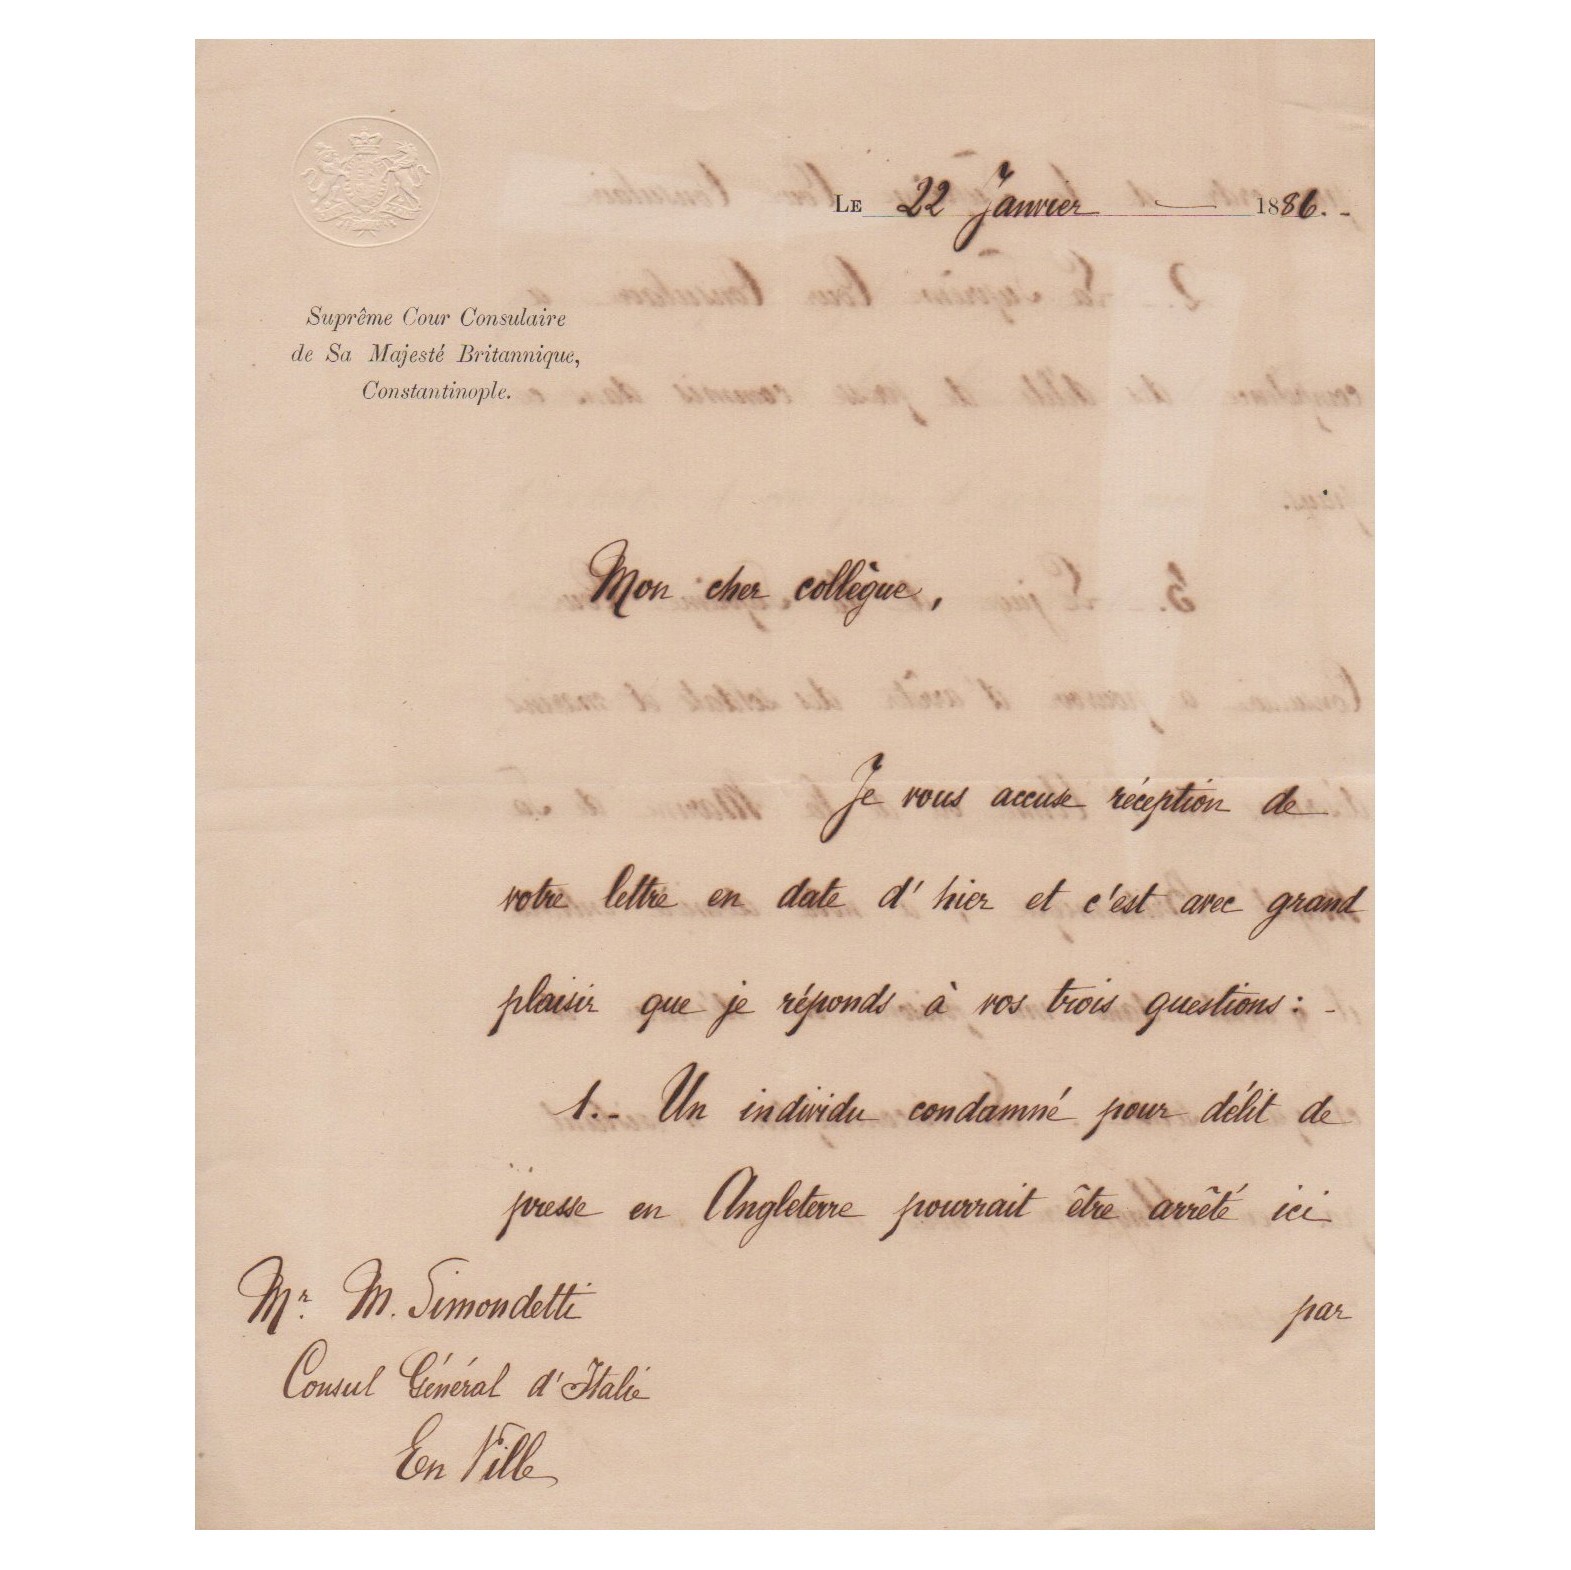 LE 22 Janvier 1886.-
Suprême Cour Consulaire
de Sa Majesté Britannique,
Constantinople.
Mon cher collègue,
Je vous accuse réception de
votre lettre en date d'hier et c'est avec grand
plaisir que je réponds à vos trois questions:-
1.- Un individu condamné pour délit de
presse en Angleterre pourrait être arrêté ici
par
Mr. M. Simondetti
Consul Général d'Italie
En Ville